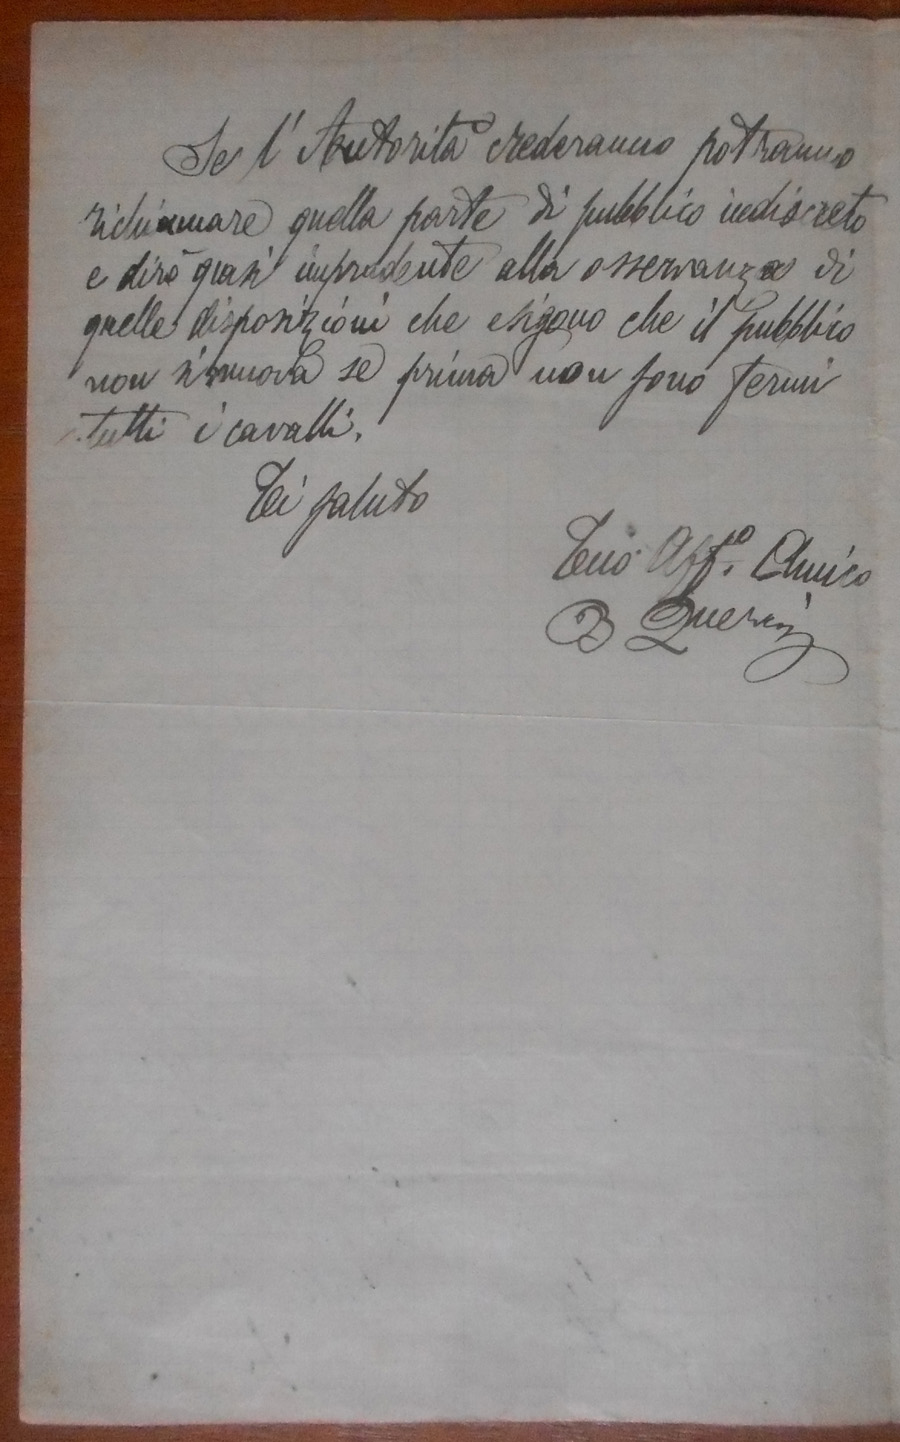 Se l'Autorità crederanno potranno
richiamare quella parte di pubblico indiscreto
e dirò quasi imprudente alla osservanza di
quelle disposizioni che esigono che il pubblico
non si muova se prima non sono fermi
tutti i cavalli.
Ti saluto
Tuo Aff.o Amico
B